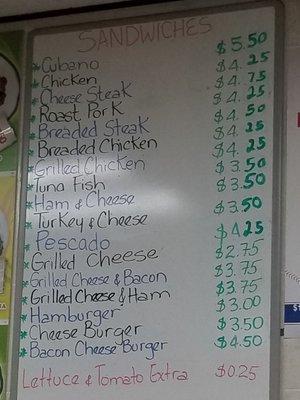 SANDWICHES
* Cubano $5.50
* Chicken $4.25
* Cheese Steak $4.75
* Roast Pork $4.25
* Breaded Steak $4.50
* Breaded Chicken $4.25
* Grilled Chicken $4.25
* Tuna Fish $3.50
* Ham & Cheese $3.50
* Turkey & Cheese $3.50
* Pescado $4.25
* Grilled Cheese $2.75
* Grilled Cheese & Bacon $3.75
* Grilled Cheese & Ham $3.75
* Hamburger $3.00
* Cheese Burger $3.50
* Bacon Cheese Burger $4.50
Lettuce & Tomato Extra $0.25